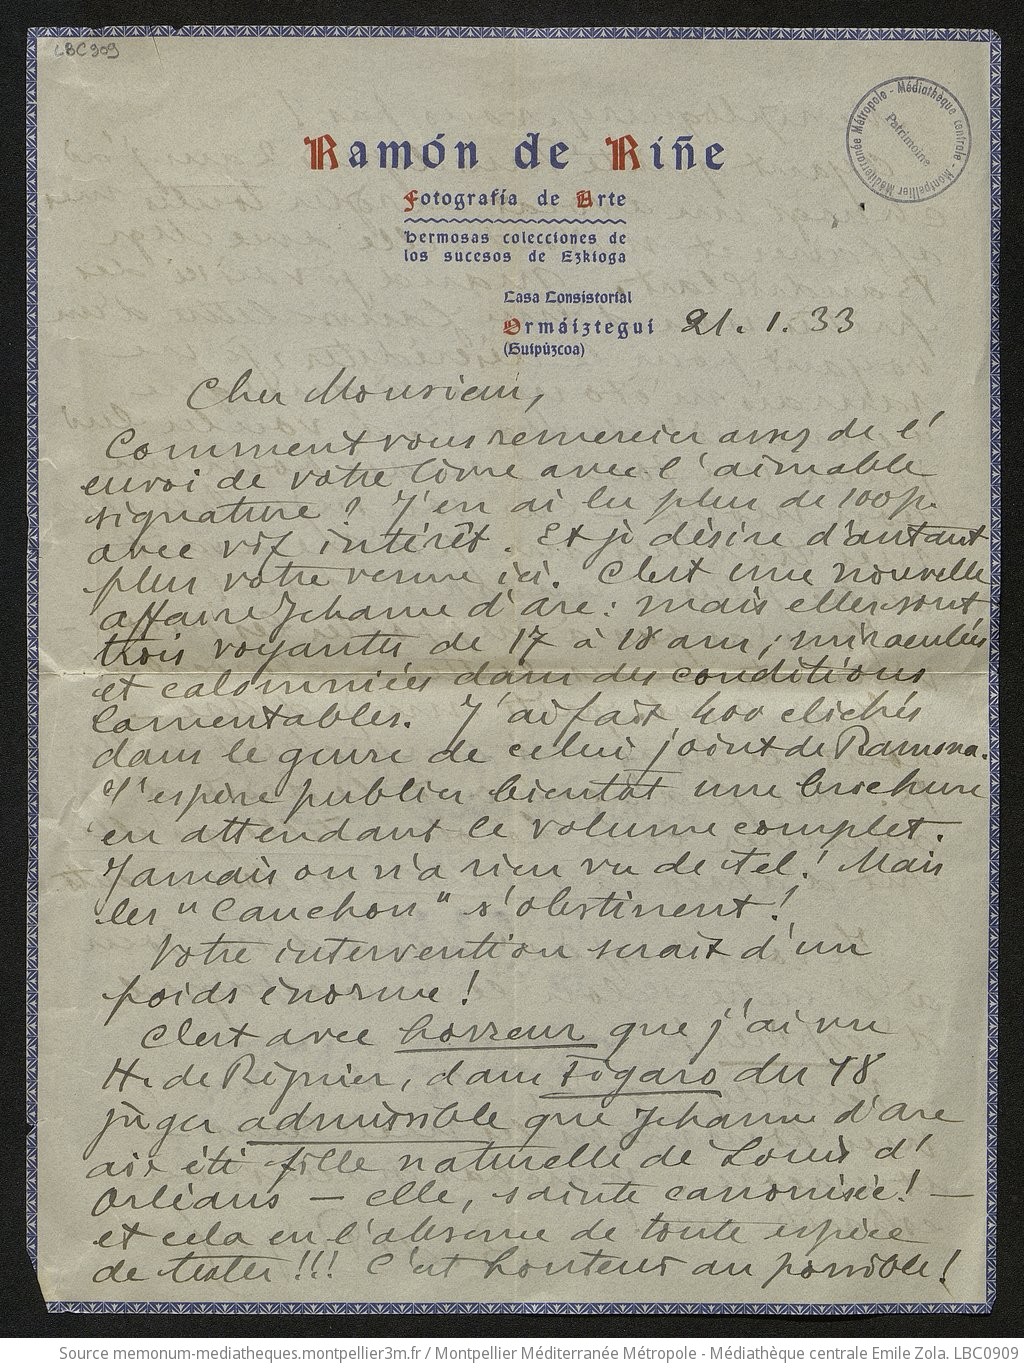 LBC 909
Médiathèque centrale - Montpellier Méditerranée Métropole -
Patrimoine
Ramón de Riñe
Fotografía de Arte
hermosas colecciones de
los sucesos de Ezkioga
Casa Consistorial
Ormáiztegui 21. 1. 33
(Guipúzcoa)
Cher Monsieur,
Comment vous remercier assez de l'
envoi de votre livre avec l'aimable
signature ? J'en ai lu plus de 100 p.
avec vif intérêt. Et je désire d'autant
plus votre venue ici. C'est une nouvelle
affaire Jehanne d'Arc : mais elles sont
trois voyantes de 17 à 18 ans ; miraculées
et calomniées dans des conditions
lamentables. J'ai fait 400 clichés
dans le genre de celui joint de Ramona.
J'espère publier bientôt une brochure
en attendant le volume complet.
Jamais on n'a rien vu de tel ! Mais
les "Cauchon" s'obstinent !
Votre intervention serait d'un
poids énorme !
C'est avec horreur que j'ai vu
H. de Régnier, dans Figaro du 18
juger admissible que Jehanne d'Arc
ait été fille naturelle de Louis d'
Orléans — elle, sainte canonisée ! —
et cela en l'absence de toute espèce
de textes !!! C'est honteux au possible !
Source memonum-mediatheques.montpellier3m.fr / Montpellier Méditerranée Métropole - Médiathèque centrale Emile Zola. LBC0909